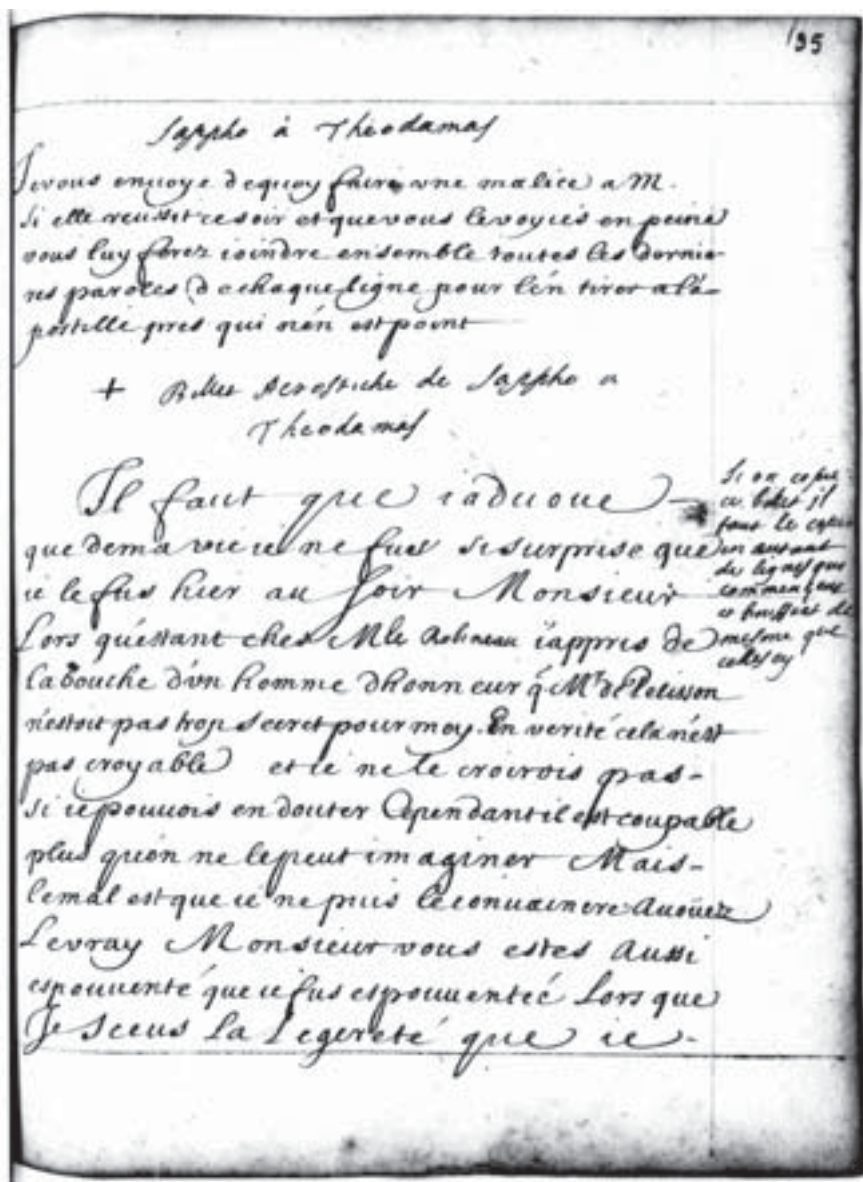 195
Sappho à Theodamas
Je vous envoye dequoy faire une malice a M.
si elle reussit ce soir et que vous le voyiés en peine
vous luy ferez joindre ensemble toutes les dernie-
res paroles de chaque ligne pour l'en tirer a l'a-
postille pres qui n'en est point
+ Billet Acrostiche de Sappho a
Theodamas
Il faut que iaduoue
que de ma vie ie ne fus si surprise que
ie le fus hier au soir Monsieur
Lors qu'estant ches Mlle Robineau i'appris de
la bouche d'un homme d'honneur q̃ Mr de Pelisson
n'estoit pas trop secret pour moy. En verité cela n'est
pas croyable et ie ne le croirois pas-
si ie pouvois en douter Cependant il est coupable
plus qu'on ne le peut imaginer Mais-
le mal est que ie ne puis le convaincre Auoüez
Le vray Monsieur vous estes Aussi
espouventé que ie fus espouventeé Lors que
Je sceus La Legereté que ie-
Si on copie
ce billet il
faut le copier
en autant
de lignes que
commençent
de
mesme que
celles cy